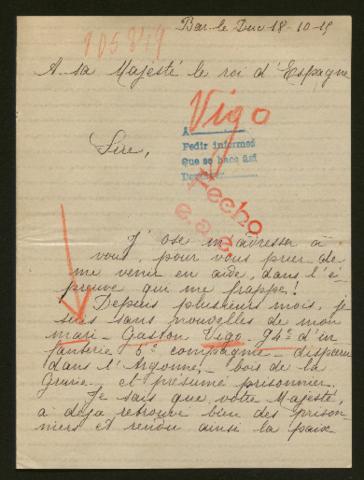 Bar-le-Duc 18-10-15
105849
A sa Majesté le roi d'Espagne
Vigo
A
Pedir informes
Que se hace así
Sire,
Fecho
J'ose m'adresser à
vous, pour vous prier de
me venir en aide, dans l'é-
preuve qui me frappe!
Depuis plusieurs mois, je
suis sans nouvelles de mon
mari - Gaston Vigo. 94e d'in
fanterie 5e compagnie - disparu
dans l'Argonne, - bois de la
Grurie. et présumé prisonnier.
Je sais que votre Majesté,
a déjà retrouvé bien des prison-
niers et rendu ainsi la paix